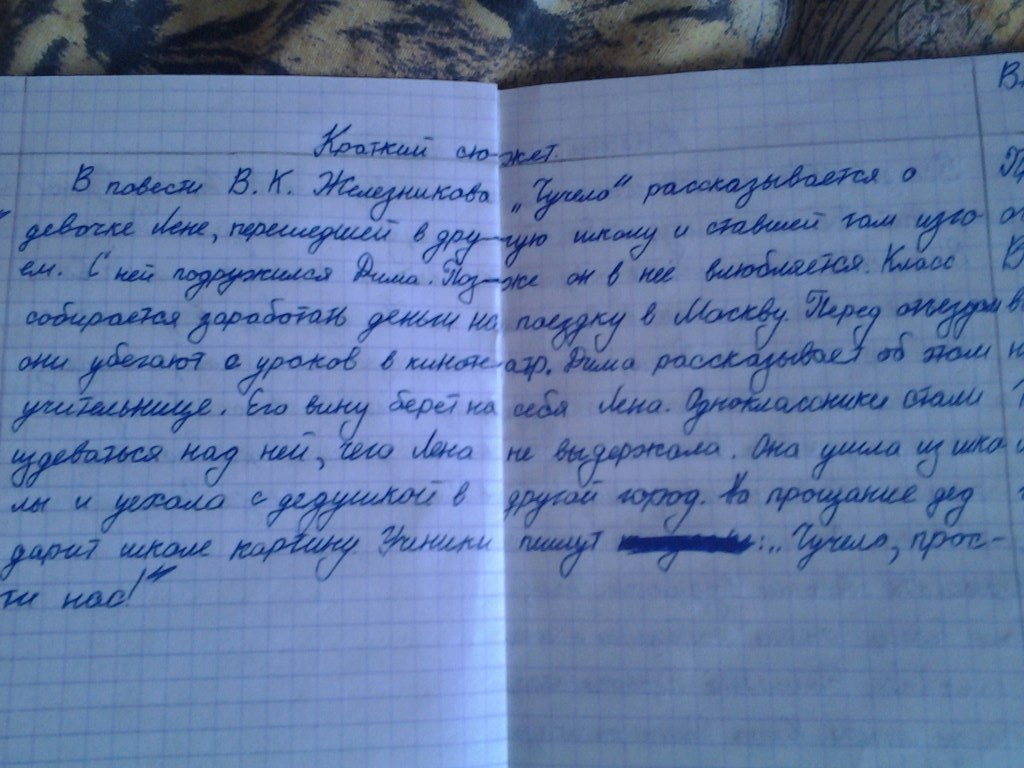 Краткий сюжет
В повести В. К. Железникова „Чучело“ рассказывается о
девочке Лене, перешедшей в другую школу и ставшей там изго-
ем. С ней подружился Дима. Позже он в неё влюбляется. Класс
собирается заработать деньги на поездку в Москву. Перед отъездом
они убегают с уроков в кинотеатр. Дима рассказывает об этом
учительнице. Его вину берёт на себя Лена. Одноклассники стали
издеваться над ней, чего Лена не выдержала. Она ушла из шко
лы и уехала с дедушкой в другой город. На прощание дед
дарит школе картину. Ученики пишут : „Чучело, прос-
ти нас!“